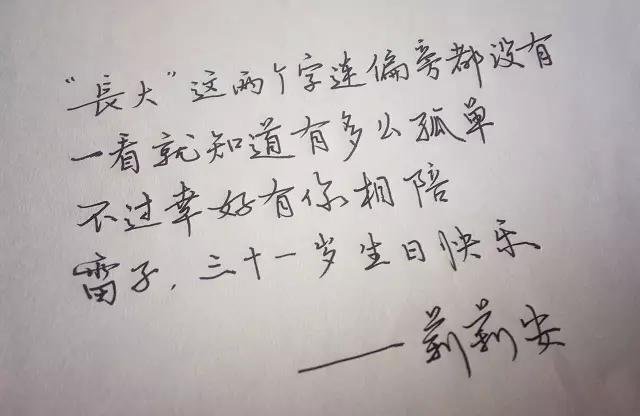 “長大”这两个字连偏旁都没有
一看就知道有多么孤单
不过幸好有你相陪
雷子，三十一岁生日快乐
——莉莉安